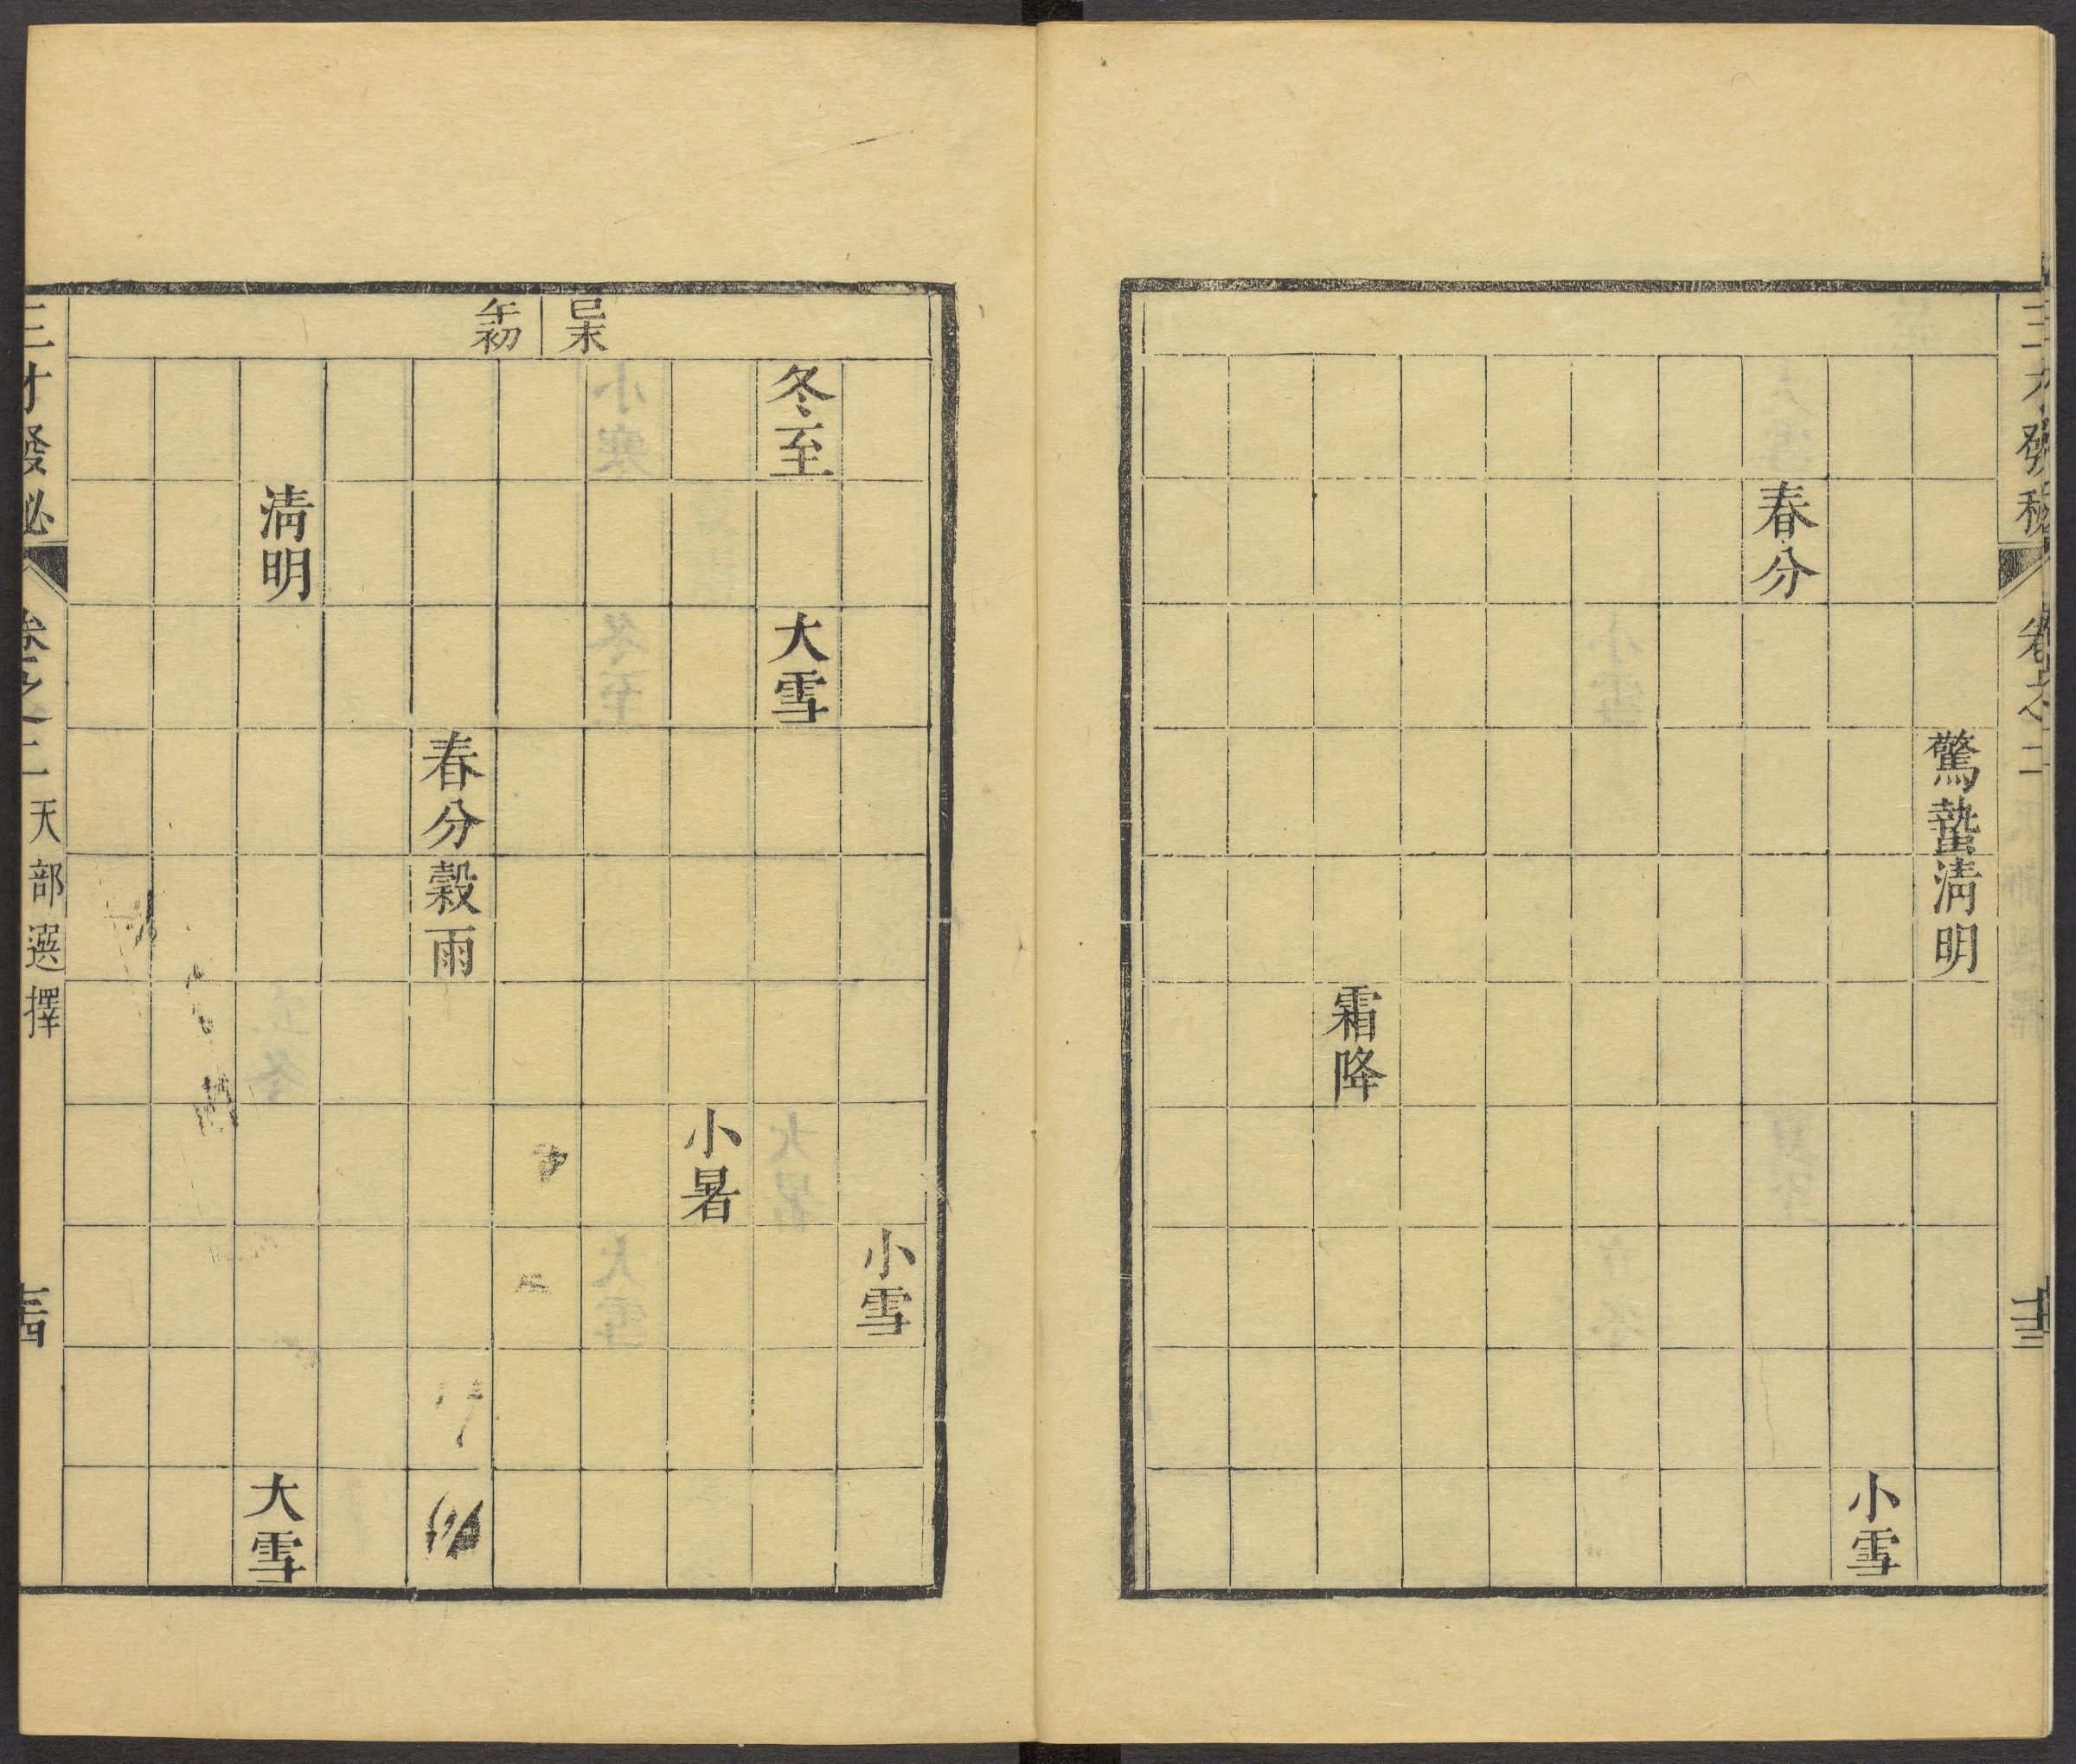 三才發秘
卷之二
十三
驚蟄清明
小雪
春分
霜降
巳末
午初
小雪
冬至
大雪
小暑
春分穀雨
清明
大雪
三才發秘
卷之二
天部選擇
十四